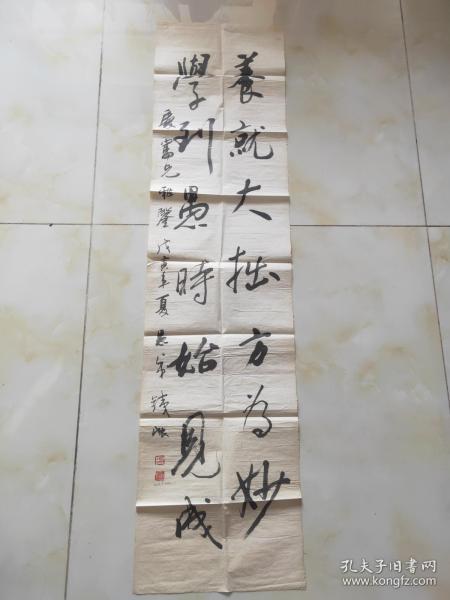 養就大拙方為妙
學到愚時始見成
戊寅年夏
孔夫子旧书网
www.kongfz.com